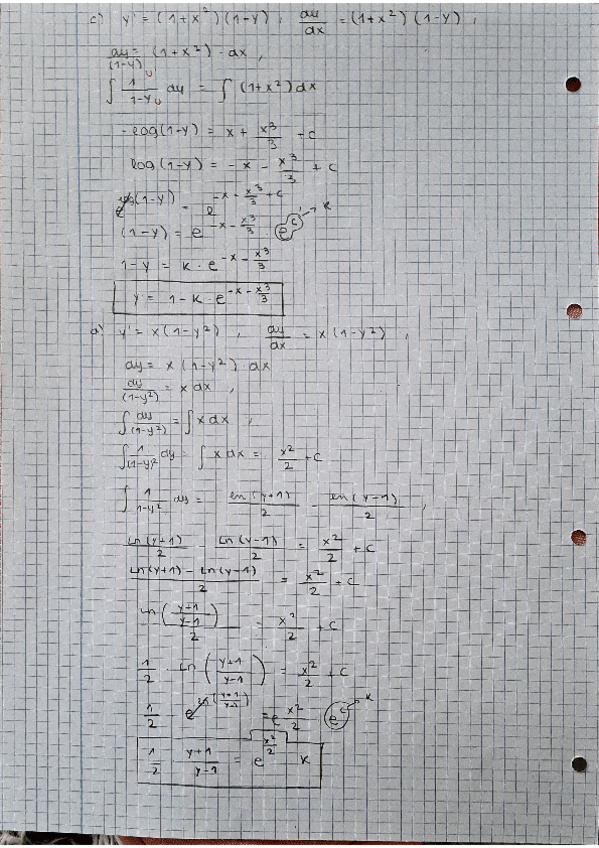 c) y' = (1+x²)(1-y), dy/dx = (1+x²)(1-y),
dy/(1-y) = (1+x²)·dx,
∫ 1/(1-y) dy = ∫ (1+x²) dx
-log(1-y) = x + x³/3 + c
log(1-y) = -x - x³/3 + c
e^(log(1-y)) = e^(-x - x³/3 + c)
(1-y) = e^(-x - x³/3) e^c → k
1-y = k · e^(-x - x³/3)
y = 1 - k · e^(-x - x³/3)
d) y' = x(1-y²), dy/dx = x(1-y²),
dy = x(1-y²) dx
dy/(1-y²) = x dx,
∫ dy/(1-y²) = ∫ x dx,
∫ 1/(1-y)² dy = ∫ x dx = x²/2 + c
∫ 1/(1-y²) dy = ln(y+1)/2 - ln(y-1)/2,
ln(y+1)/2 - ln(y-1)/2 = x²/2 + c
(ln(y+1) - ln(y-1))/2 = x²/2 + c
ln((y+1)/(y-1))/2 = x²/2 + c
1/2 · ln((y+1)/(y-1)) = x²/2 + c
1/2 · e^(ln((y+1)/(y-1))) = e^(x²/2) e^c → k
1/2 (y+1)/(y-1) = e^(x²/2) k